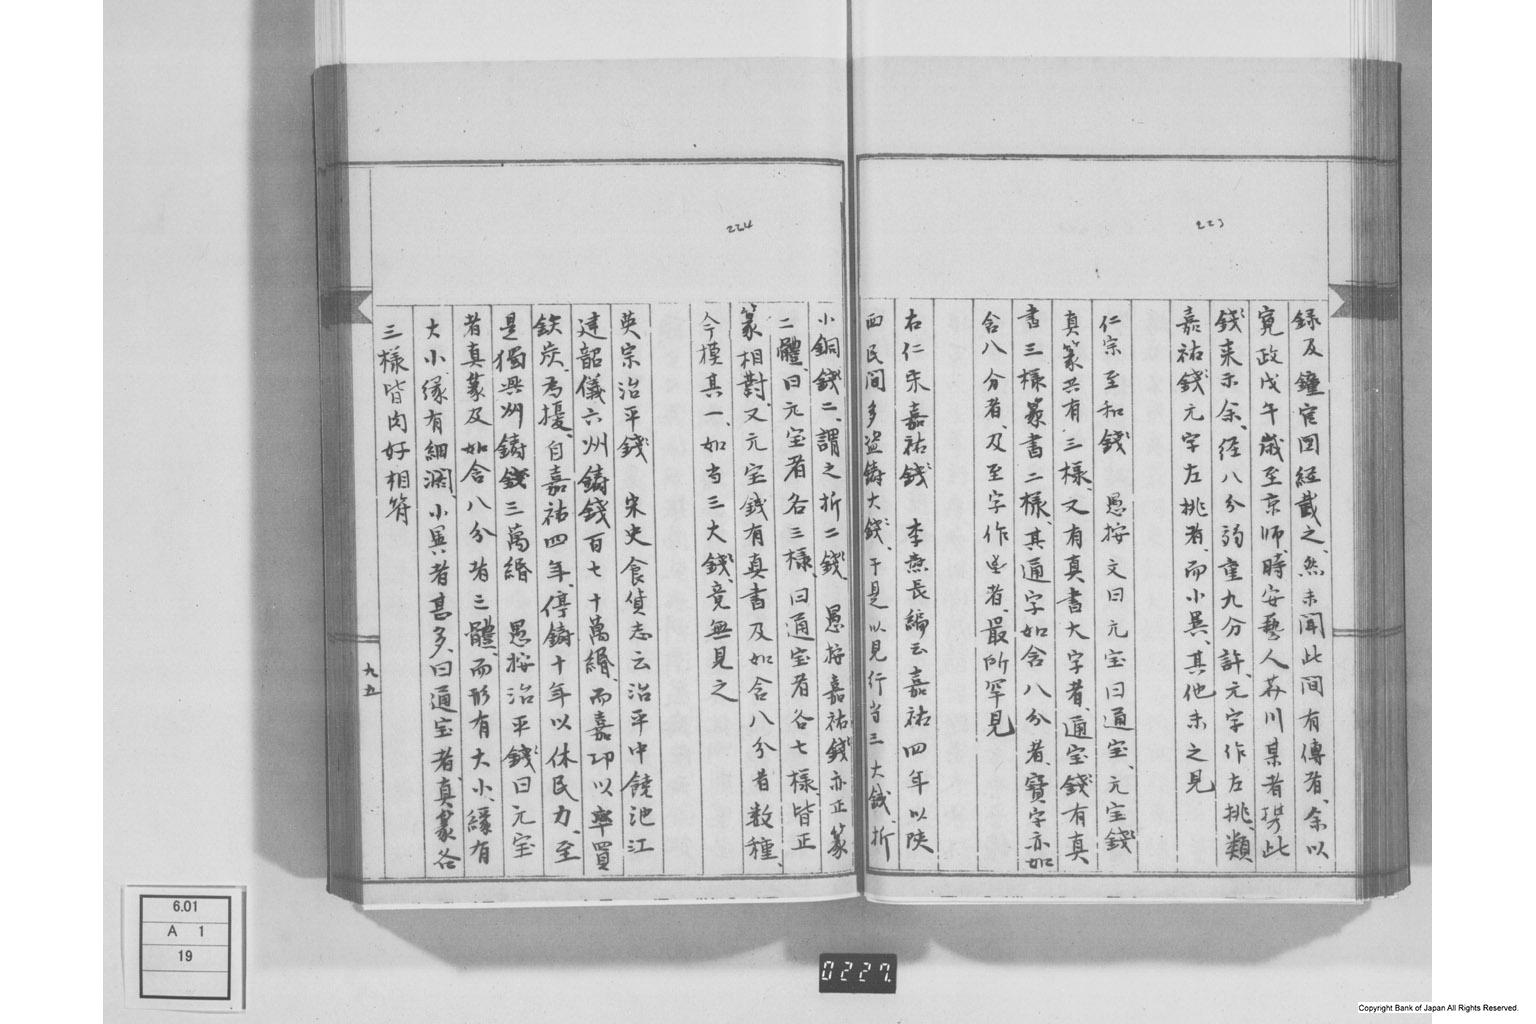 223
録及鐘官図経載之、然未聞此間有傳者、余以
寛政戊午歳至京師、時安藝人森川某者携此
錢来示余、径八分弱重九分許、元字作左挑、類
嘉祐錢元字左挑者、而小異、其他未之見
仁宗至和錢 愚按文曰元宝曰通宝、元宝錢
真篆共有三様、又有真書大字者、通宝錢有真
書三様篆書二様、其通字如含八分者、寳字亦如
含八分者、及至字作坐者、最所罕見
右仁宋嘉祐錢 李燾長編云嘉祐四年以陝
西民間多盗鋳大錢、于是以見行当三大錢、折
224
小銅錢二、謂之折二錢 愚按嘉祐錢亦正篆
二體、曰元宝者各三様、曰通宝者各七様、皆正
篆相對、又元宝錢有真書及如含八分者数種、
今模其一、如当三大錢、竟無見之
英宗治平錢 宋史食貨志云治平中饒池江
建韶儀六州鋳錢百七十萬緡、而嘉邛以率買
鉄炭、為擾、自嘉祐四年、停鋳十年以休民力、至
是獨興州鋳錢三萬緡 愚按治平錢曰元宝
者真篆及如含八分者三體、而形有大小、縁有
大小縁有細濶、小異者甚多、曰通宝者、真篆各
三様皆肉好相符
九五
6.01
A 1
19
0227.
Copyright Bank of Japan All Rights Reserved.